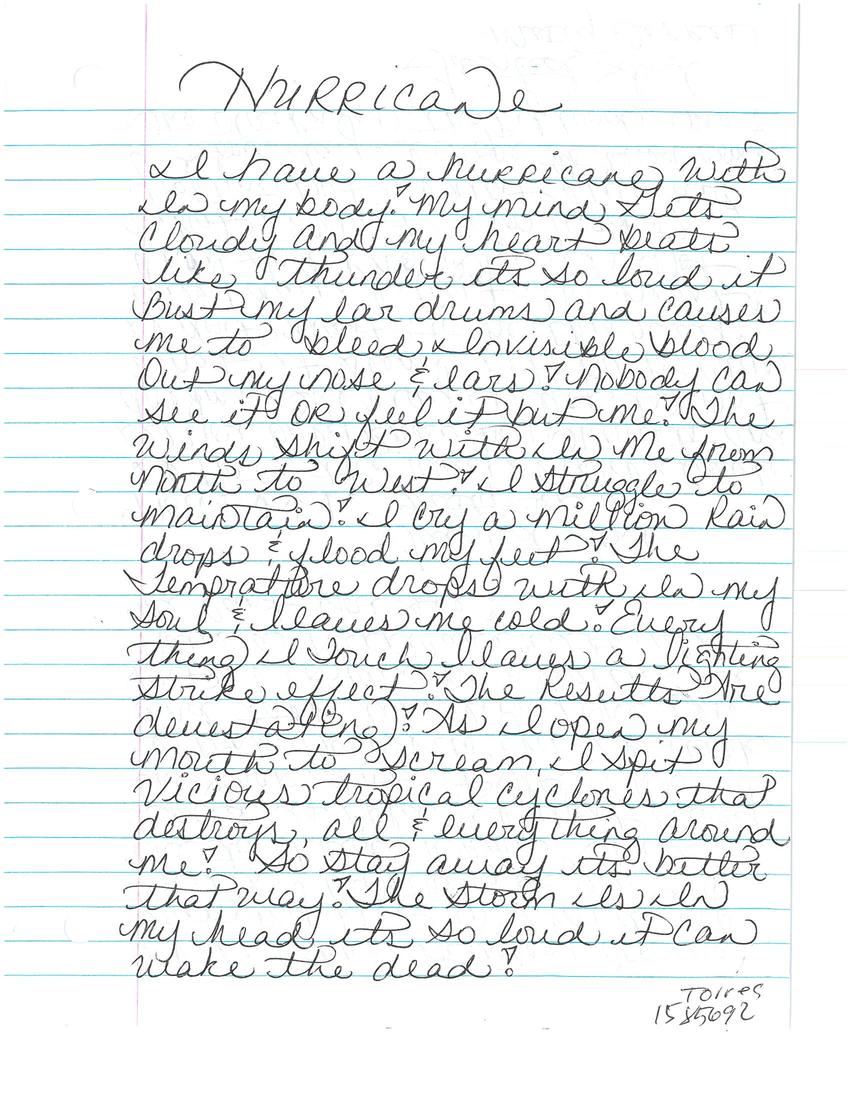 Hurricane
I have a hurricane with
in my body! My mind gets
cloudy and my heart beats
like thunder its so loud it
bust my ear drums and causes
me to bleed Invisible blood
out my nose & ears! Nobody can
see it or feel it but me! The
winds shift with in me from
north to West! I struggle to
maintain! I cry a million Rain
drops & flood my feet! The
Temprature drops with in my
soul & leaves me cold! Every
thing I touch leaves a lighting
strike effect! The Results Are
devestating! As I open my
mouth to scream, I spit
vicious tropical cyclones that
destroys, all & everything around
me! So stay away its better
that way! The storm Is In
my head its so loud it can
wake the dead!
Torres
1585692